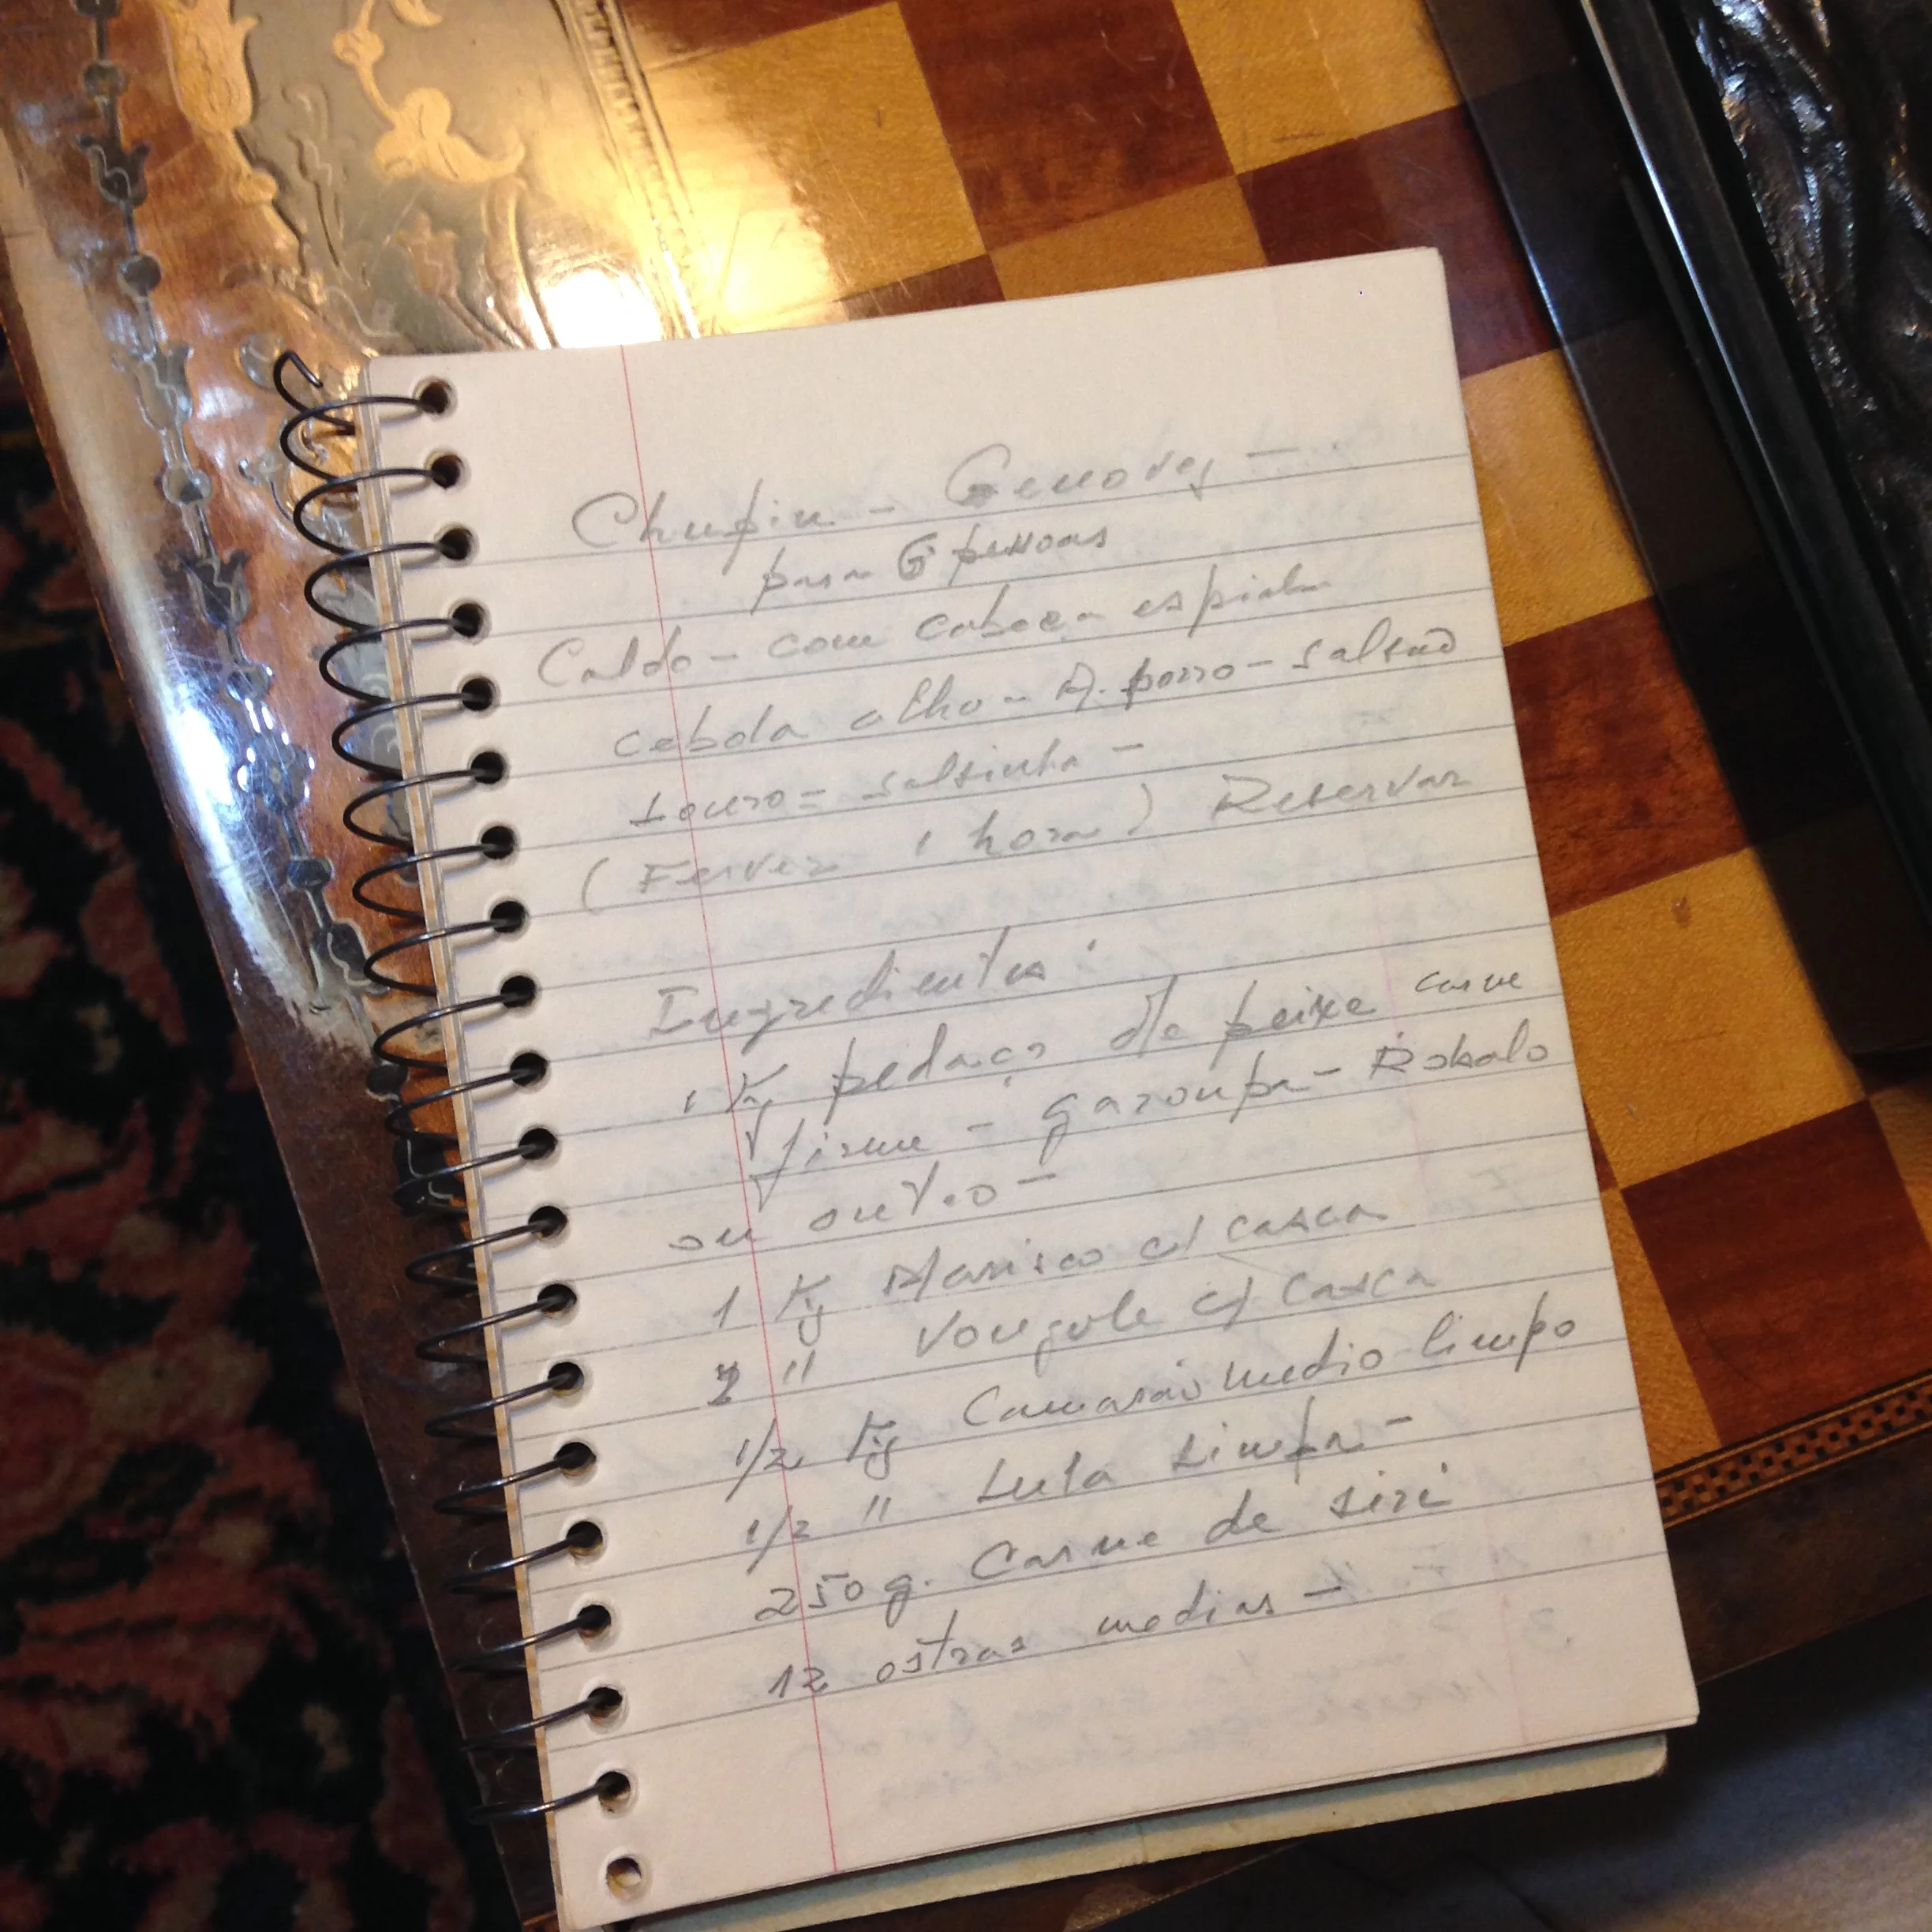 Chupin - Genovez -
para 6 pessoas
Caldo - com cabeça espinha
cebola alho - A. porro - salsão
Louro = salsinha -
(Ferver 1 hora) Reservar
Ingredientes:
1 Kg pedaço de peixe carne
firme - garoupa - Robalo
ou outro -
1 Kg Marisco c/ casca
" Vongole c/ casca
1/2 Kg Camarão medio limpo
1/2 " Lula Limpa -
250 g. Carne de siri
12 ostras medias -